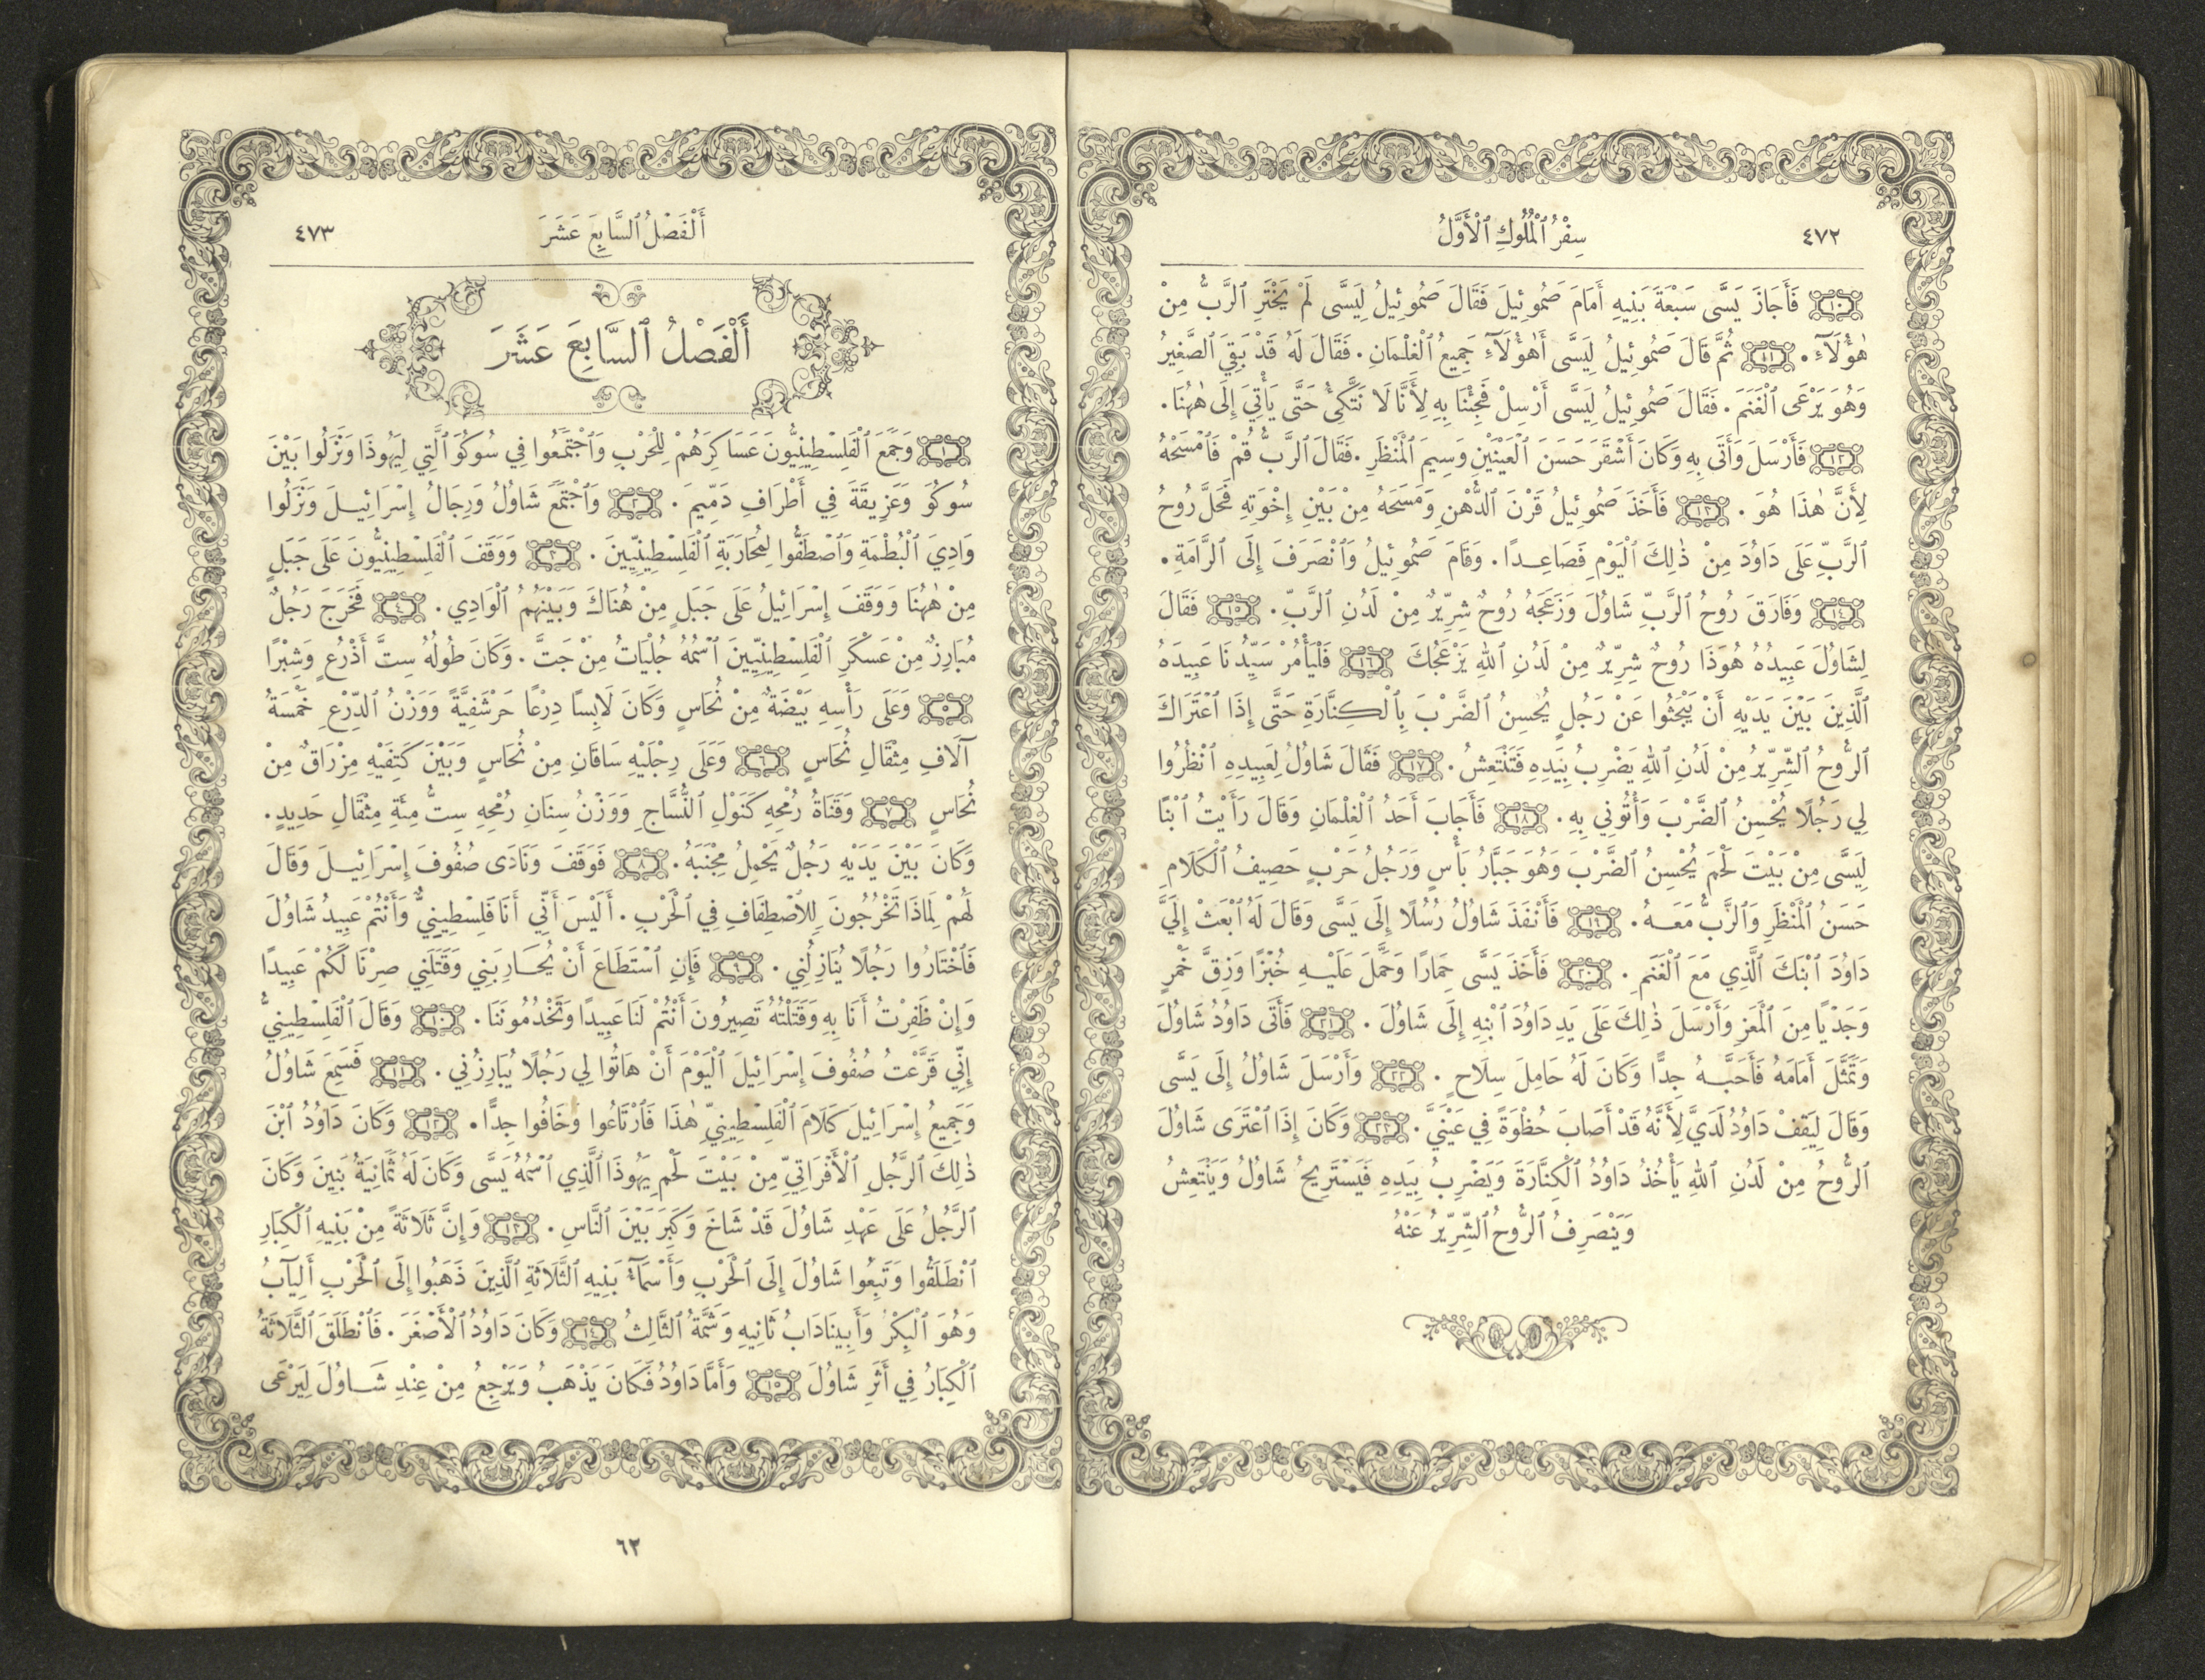 ٤٧٢
سِفْرُ ٱلْمُلُوكِ ٱلْأَوَّلُ
١٠ فَأَجَازَ يَسَّى سَبْعَةَ بَنِيهِ أَمَامَ صَمُوئِيلَ فَقَالَ صَمُوئِيلُ لِيَسَّى لَمْ يَخْتَرِ ٱلرَّبُّ مِنْ
هٰؤُلَآءِ. ١١ ثُمَّ قَالَ صَمُوئِيلُ لِيَسَّى أَهٰؤُلَآءِ جَمِيعُ ٱلْغِلْمَانِ. فَقَالَ لَهُ قَدْ بَقِيَ ٱلصَّغِيرُ
وَهُوَ يَرْعَى ٱلْغَنَمَ. فَقَالَ صَمُوئِيلُ لِيَسَّى أَرْسِلْ فَجِئْنَا بِهِ لِأَنَّا لَا نَتَّكِئُ حَتَّى يَأْتِيَ إِلَى هٰهُنَا.
١٢ فَأَرْسَلَ وَأَتَى بِهِ وَكَانَ أَشْقَرَ حَسَنَ ٱلْعَيْنَيْنِ وَسِيمَ ٱلْمَنْظَرِ. فَقَالَ ٱلرَّبُّ قُمْ فَٱمْسَحْهُ
لِأَنَّ هٰذَا هُوَ. ١٣ فَأَخَذَ صَمُوئِيلُ قَرْنَ ٱلدُّهْنِ وَمَسَحَهُ مِنْ بَيْنِ إِخْوَتِهِ فَحَلَّ رُوحُ
ٱلرَّبِّ عَلَى دَاوُدَ مِنْ ذٰلِكَ ٱلْيَوْمِ فَصَاعِدًا. وَقَامَ صَمُوئِيلُ وَٱنْصَرَفَ إِلَى ٱلرَّامَةِ.
١٤ وَفَارَقَ رُوحُ ٱلرَّبِّ شَاوُلَ وَزَعَجَهُ رُوحٌ شِرِّيرٌ مِنْ لَدُنِ ٱلرَّبِّ. ١٥ فَقَالَ
لِشَاوُلَ عَبِيدُهُ هُوَذَا رُوحٌ شِرِّيرٌ مِنْ لَدُنِ ٱللهِ يَزْعَجُكَ ١٦ فَلْيَأْمُرْ سَيِّدُنَا عَبِيدَهُ
ٱلَّذِينَ بَيْنَ يَدَيْهِ أَنْ يَبْحَثُوا عَنْ رَجُلٍ يُحْسِنُ ٱلضَّرْبَ بِٱلْكِنَّارَةِ حَتَّى إِذَا ٱعْتَرَاكَ
ٱلرُّوحُ ٱلشِّرِّيرُ مِنْ لَدُنِ ٱللهِ يَضْرِبُ بِيَدِهِ فَتَنْتَعِشُ. ١٧ فَقَالَ شَاوُلُ لِعَبِيدِهِ ٱنْظُرُوا
لِي رَجُلًا يُحْسِنُ ٱلضَّرْبَ وَأْتُونِي بِهِ. ١٨ فَأَجَابَ أَحَدُ ٱلْغِلْمَانِ وَقَالَ رَأَيْتُ ٱبْنًا
لِيَسَّى مِنْ بَيْتَ لَحْمَ يُحْسِنُ ٱلضَّرْبَ وَهُوَ جَبَّارُ بَأْسٍ وَرَجُلُ حَرْبٍ حَصِيفُ ٱلْكَلَامِ
حَسَنُ ٱلْمَنْظَرِ وَٱلرَّبُّ مَعَهُ. ١٩ فَأَنْفَذَ شَاوُلُ رُسُلًا إِلَى يَسَّى وَقَالَ لَهُ ٱبْعَثْ إِلَيَّ
دَاوُدَ ٱبْنَكَ ٱلَّذِي مَعَ ٱلْغَنَمِ. ٢٠ فَأَخَذَ يَسَّى حِمَارًا وَحَمَّلَ عَلَيْهِ خُبْزًا وَزِقَّ خَمْرٍ
وَجَدْيًا مِنَ ٱلْمَعَزِ وَأَرْسَلَ ذٰلِكَ عَلَى يَدِ دَاوُدَ ٱبْنِهِ إِلَى شَاوُلَ. ٢١ فَأَتَى دَاوُدُ شَاوُلَ
وَتَمَثَّلَ أَمَامَهُ فَأَحَبَّهُ جِدًّا وَكَانَ لَهُ حَامِلَ سِلَاحٍ. ٢٢ وَأَرْسَلَ شَاوُلُ إِلَى يَسَّى
وَقَالَ لِيَقِفْ دَاوُدُ لَدَيَّ لِأَنَّهُ قَدْ أَصَابَ حُظْوَةً فِي عَيْنَيَّ. ٢٣ وَكَانَ إِذَا ٱعْتَرَى شَاوُلَ
ٱلرُّوحُ مِنْ لَدُنِ ٱللهِ يَأْخُذُ دَاوُدُ ٱلْكِنَّارَةَ وَيَضْرِبُ بِيَدِهِ فَيَسْتَرِيحُ شَاوُلُ وَيَنْتَعِشُ
وَيَنْصَرِفُ ٱلرُّوحُ ٱلشِّرِّيرُ عَنْهُ
أَلْفَصْلُ ٱلسَّابِعَ عَشَرَ
٤٧٣
أَلْفَصْلُ ٱلسَّابِعَ عَشَرَ
١ وَجَمَعَ ٱلْفَلِسْطِينِيُّونَ عَسَاكِرَهُمْ لِلْحَرْبِ وَٱجْتَمَعُوا فِي سُوكُوَ ٱلَّتِي لِيَهُوذَا وَنَزَلُوا بَيْنَ
سُوكُوَ وَعَزِيقَةَ فِي أَطْرَافِ دَمِّيمَ. ٢ وَٱجْتَمَعَ شَاوُلُ وَرِجَالُ إِسْرَائِيلَ وَنَزَلُوا
وَادِيَ ٱلْبُطْمَةِ وَٱصْطَفُّوا لِمُحَارَبَةِ ٱلْفَلِسْطِينِيِّينَ. ٣ وَوَقَفَ ٱلْفَلِسْطِينِيُّونَ عَلَى جَبَلٍ
مِنْ هٰهُنَا وَوَقَفَ إِسْرَائِيلُ عَلَى جَبَلٍ مِنْ هُنَاكَ وَبَيْنَهُمُ ٱلْوَادِي. ٤ فَخَرَجَ رَجُلٌ
مُبَارِزٌ مِنْ عَسْكَرِ ٱلْفَلِسْطِينِيِّينَ ٱسْمُهُ جُلْيَاتُ مِنْ جَتَّ. وَكَانَ طُولُهُ سِتَّ أَذْرُعٍ وَشِبْرًا
٥ وَعَلَى رَأْسِهِ بَيْضَةٌ مِنْ نُحَاسٍ وَكَانَ لَابِسًا دِرْعًا حَرْشَفِيَّةً وَوَزْنُ ٱلدِّرْعِ خَمْسَةُ
آلَافِ مِثْقَالِ نُحَاسٍ ٦ وَعَلَى رِجْلَيْهِ سَاقَانِ مِنْ نُحَاسٍ وَبَيْنَ كَتِفَيْهِ مِزْرَاقٌ مِنْ
نُحَاسٍ ٧ وَقَنَاةُ رُمْحِهِ كَنَوْلِ ٱلنَّسَّاجِ وَوَزْنُ سِنَانِ رُمْحِهِ سِتُّ مِئَةِ مِثْقَالِ حَدِيدٍ.
وَكَانَ بَيْنَ يَدَيْهِ رَجُلٌ يَحْمِلُ مِجْنَبَهُ. ٨ فَوَقَفَ وَنَادَى صُفُوفَ إِسْرَائِيلَ وَقَالَ
لَهُمْ لِمَاذَا تَخْرُجُونَ لِلِٱصْطِفَافِ فِي ٱلْحَرْبِ. أَلَيْسَ أَنِّي أَنَا فَلِسْطِينِيٌّ وَأَنْتُمْ عَبِيدُ شَاوُلَ
فَٱخْتَارُوا رَجُلًا يُنَازِلُنِي. ٩ فَإِنِ ٱسْتَطَاعَ أَنْ يُحَارِبَنِي وَقَتَلَنِي صِرْنَا لَكُمْ عَبِيدًا
وَإِنْ ظَفِرْتُ أَنَا بِهِ وَقَتَلْتُهُ تَصِيرُونَ أَنْتُمْ لَنَا عَبِيدًا وَتَخْدُمُونَنَا. ١٠ وَقَالَ ٱلْفَلِسْطِينِيُّ
إِنِّي قَرَّعْتُ صُفُوفَ إِسْرَائِيلَ ٱلْيَوْمَ أَنْ هَاتُوا لِي رَجُلًا يُبَارِزُنِي. ١١ فَسَمِعَ شَاوُلُ
وَجَمِيعُ إِسْرَائِيلَ كَلَامَ ٱلْفَلِسْطِينِيِّ هٰذَا فَٱرْتَاعُوا وَخَافُوا جِدًّا. ١٢ وَكَانَ دَاوُدُ ٱبْنَ
ذٰلِكَ ٱلرَّجُلِ ٱلْأَفْرَاتِيِّ مِنْ بَيْتَ لَحْمِ يَهُوذَا ٱلَّذِي ٱسْمُهُ يَسَّى وَكَانَ لَهُ ثَمَانِيَةُ بَنِينَ وَكَانَ
ٱلرَّجُلُ عَلَى عَهْدِ شَاوُلَ قَدْ شَاخَ وَكَبِرَ بَيْنَ ٱلنَّاسِ. ١٣ وَإِنَّ ثَلَاثَةً مِنْ بَنِيهِ ٱلْكِبَارِ
ٱنْطَلَقُوا وَتَبِعُوا شَاوُلَ إِلَى ٱلْحَرْبِ وَأَسْمَآءُ بَنِيهِ ٱلثَّلَاثَةِ ٱلَّذِينَ ذَهَبُوا إِلَى ٱلْحَرْبِ أَلِيآبُ
وَهُوَ ٱلْبِكْرُ وَأَبِينَادَابُ ثَانِيهِ وَشَمَّةُ ٱلثَّالِثُ ١٤ وَكَانَ دَاوُدُ ٱلْأَصْغَرَ. فَٱنْطَلَقَ ٱلثَّلَاثَةُ
ٱلْكِبَارُ فِي أَثَرِ شَاوُلَ ١٥ وَأَمَّا دَاوُدُ فَكَانَ يَذْهَبُ وَيَرْجِعُ مِنْ عِنْدِ شَاوُلَ لِيَرْعَى
٦٢